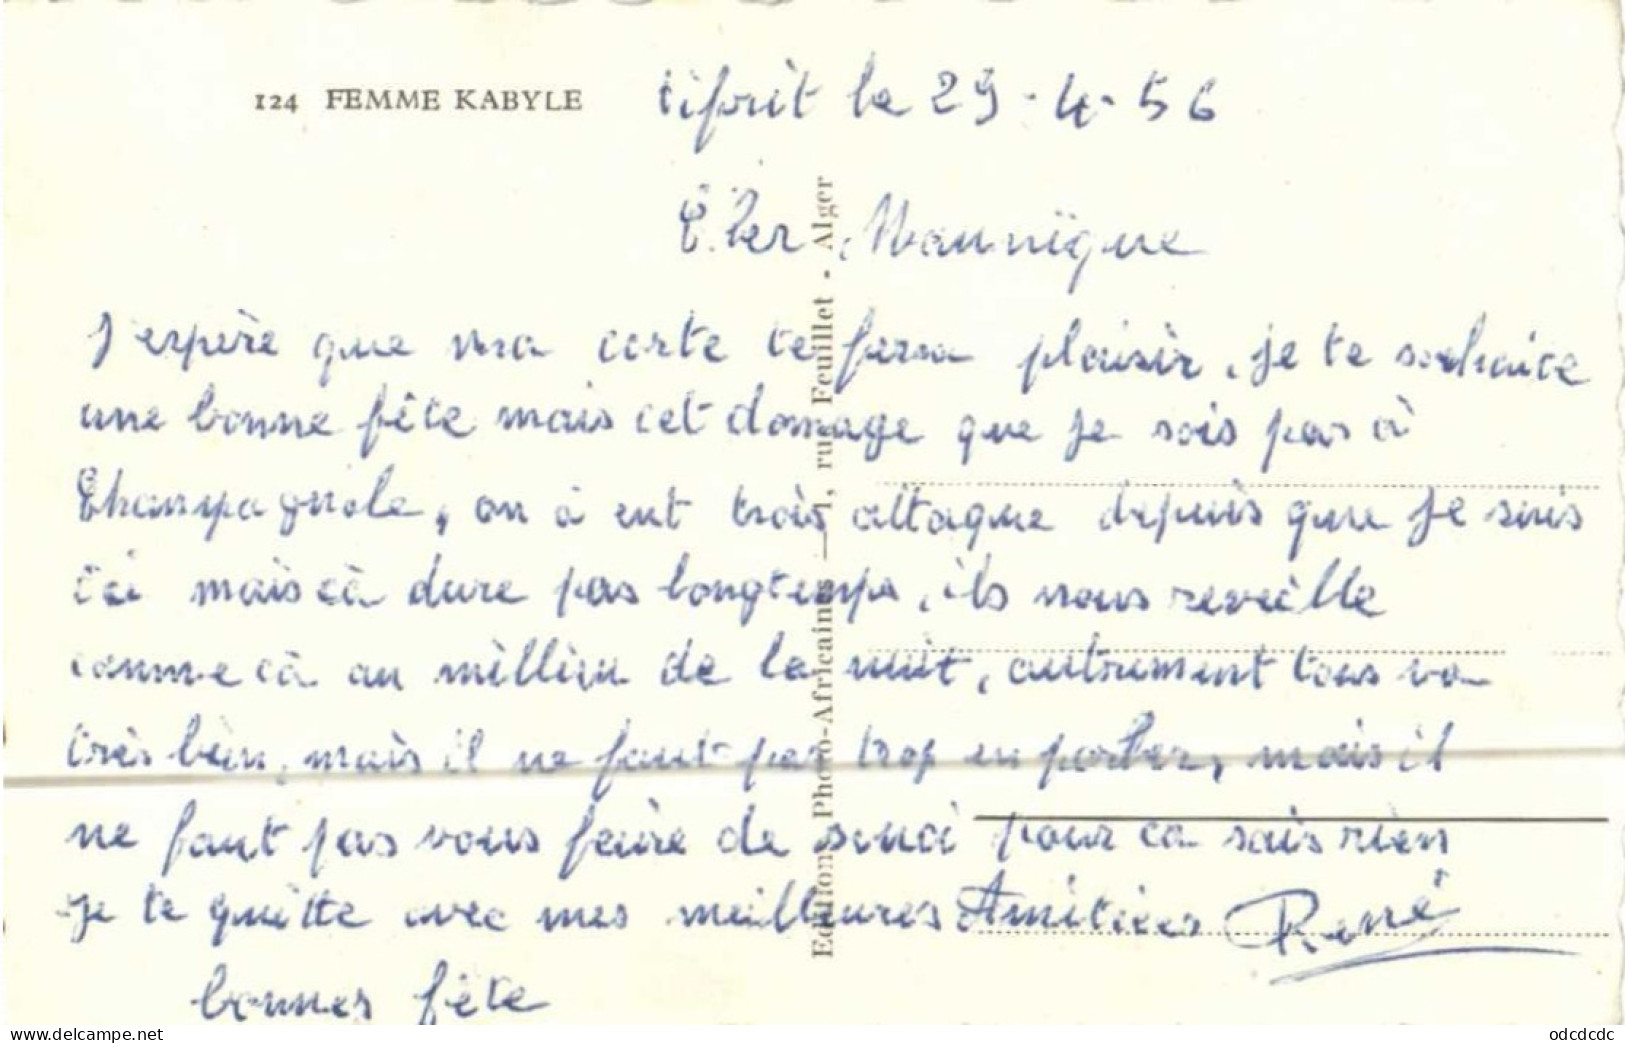 124 FEMME KABYLE
tifrit le 29.4.56
Cher Maunique
J'espère que ma carte te fera plaisir, je te souhaite
une bonne fête mais cet domage que je sois pas à
Champagnole, on à eut trois attaque depuis que je suis
ici mais cà dure pas longtemps, ils nous reveille
comme cà au millieu de la nuit, autrement tous va
très bien, mais il ne faut pas trop en parler, mais il
ne faut pas vous faire de souci pour ca sais rien
je te quitte avec mes meilleures Amitiées René
bonnes fête
Editions Photo-Africaines — rue Feuillet - Alger
https://www.delcampe.net
odcdcdc